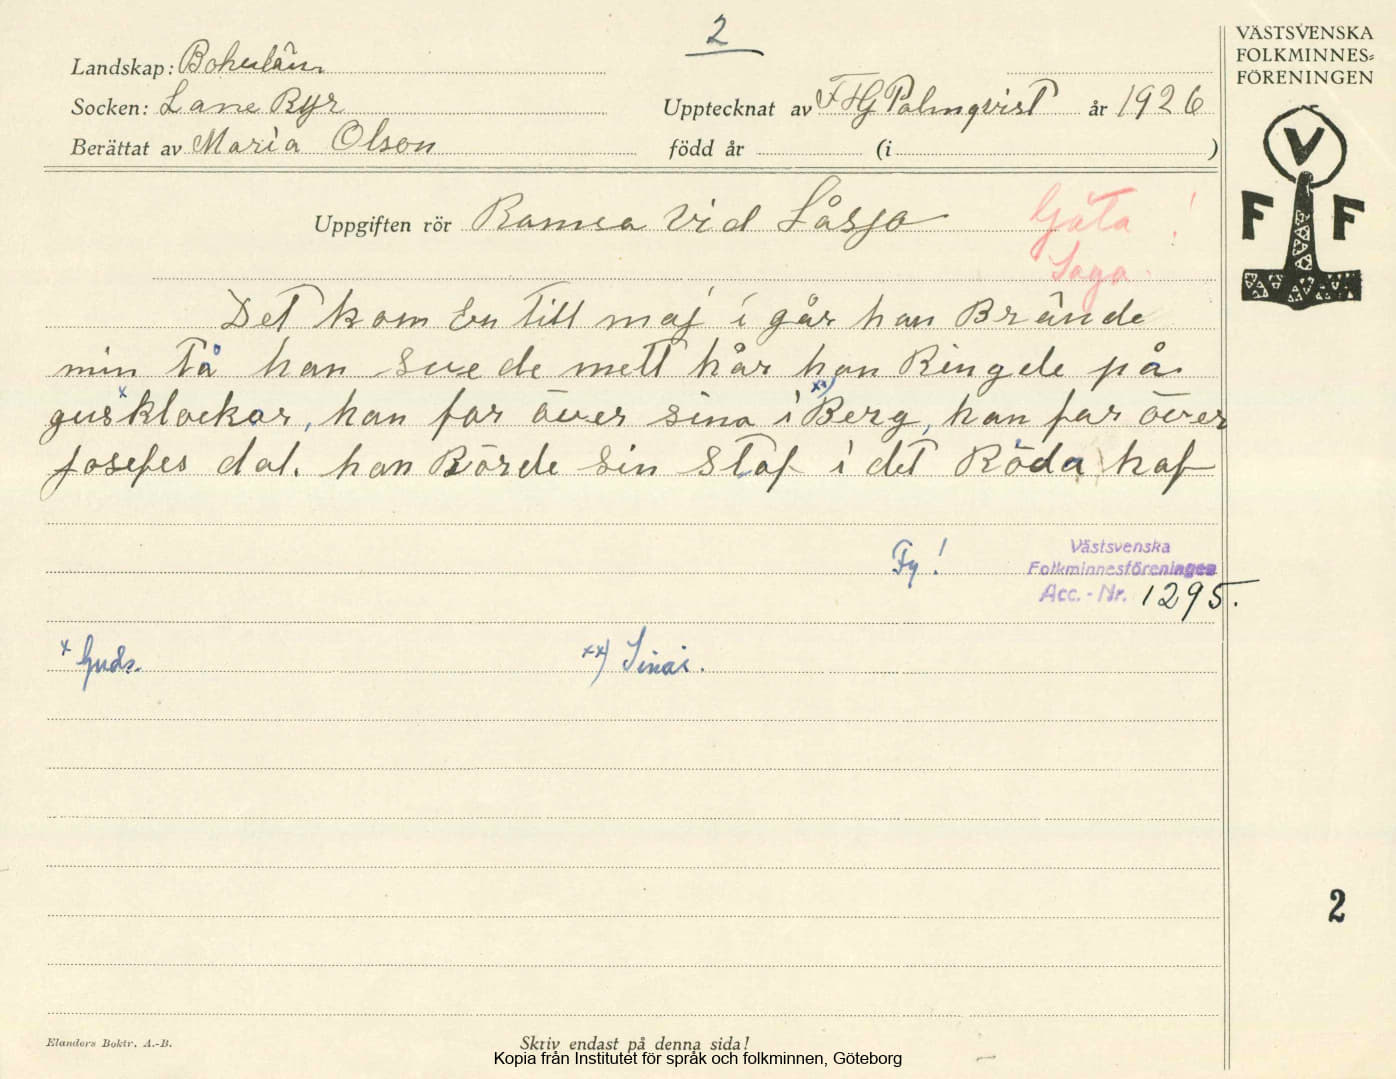 2
VÄSTSVENSKA
FOLKMINNES-
FÖRENINGEN
Landskap: Bohuslän
Socken: Lane Ryr
Upptecknat av F H G Palmqvist år 1926
Berättat av Maria Olson
född år (i )
V
F F
Uppgiften rör Ramsa vid Låsjo
Gåta !
Saga.
Det kom En till maj i går han Brände
min tå han suede mett hår han Ringde på
gusxklockor, han far över sina i xx) Berg, han far över
josefes dal. han Rörde sin staf i det Röda haf
Fy!
Västsvenska
Folkminnesföreningen
Acc. - Nr. 1295.
x Guds.
xx) Sinai.
2
Elanders Boktr. A.-B.
Skriv endast på denna sida!
Kopia från Institutet för språk och folkminnen, Göteborg